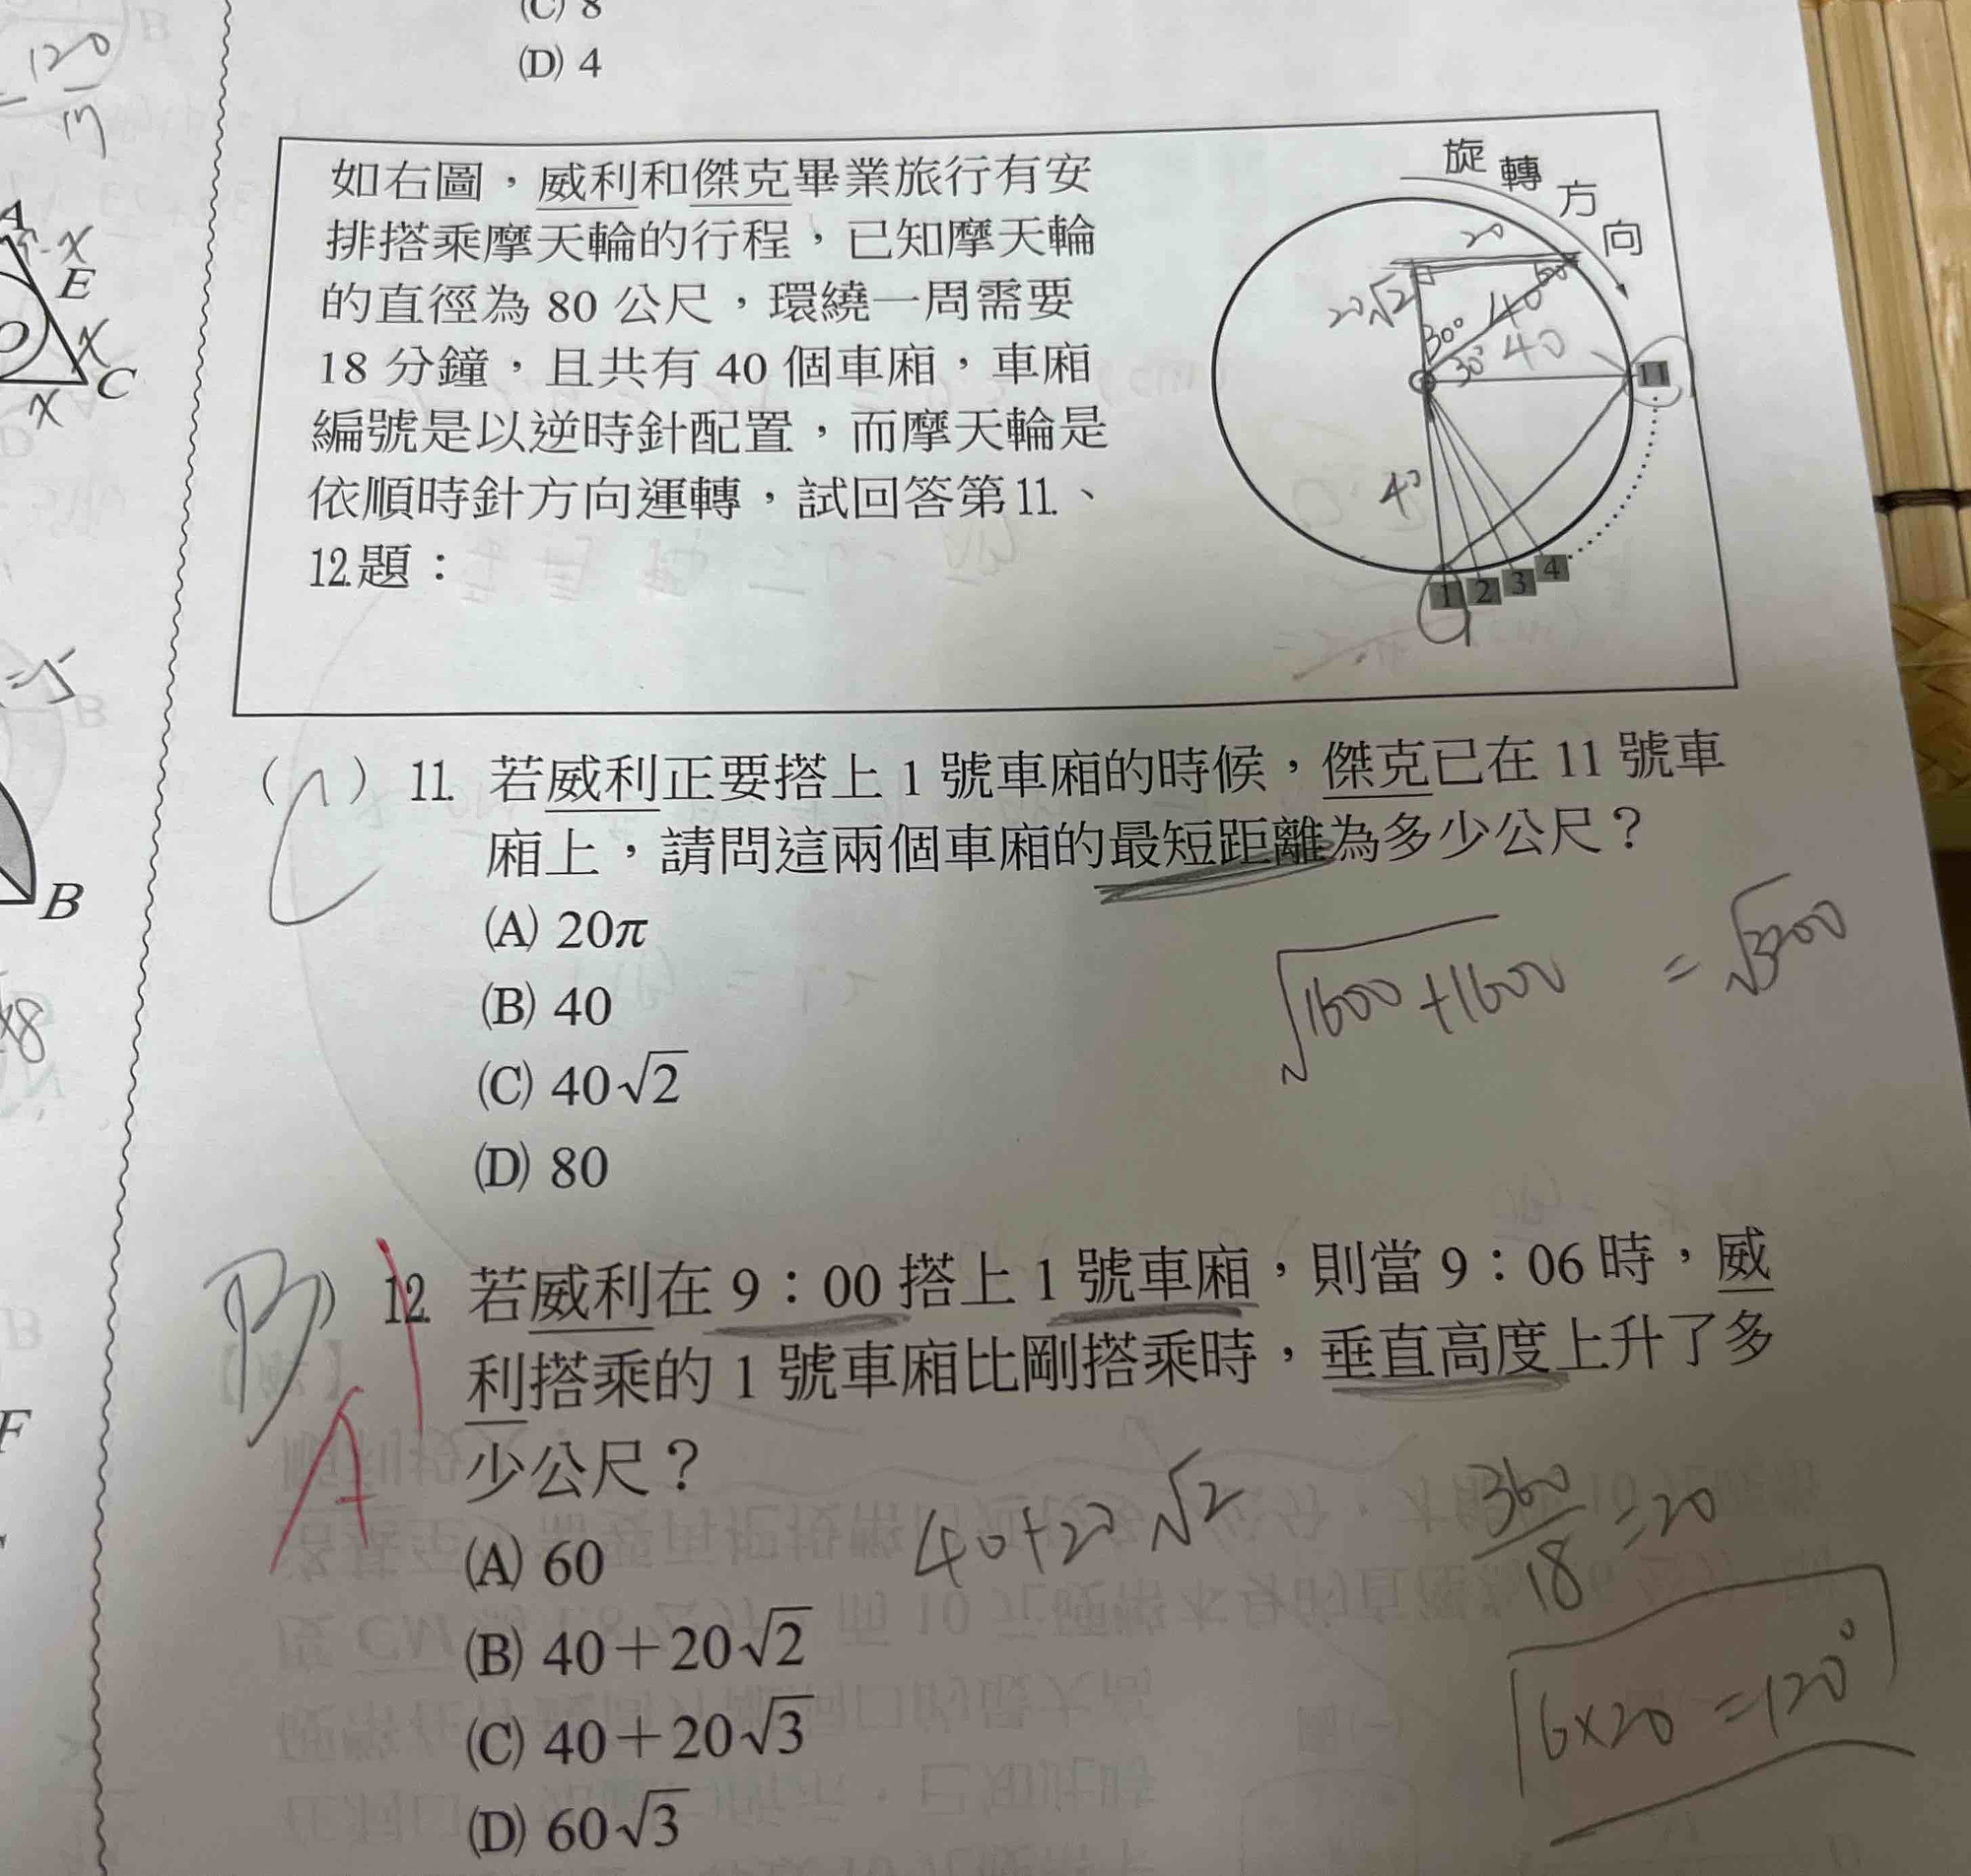 (C) 8
(D) 4
如右圖，威利和傑克畢業旅行有安
排搭乘摩天輪的行程，已知摩天輪
的直徑為 80 公尺，環繞一周需要
18 分鐘，且共有 40 個車廂，車廂
編號是以逆時針配置，而摩天輪是
依順時針方向運轉，試回答第11.、
12.題：
旋轉方向
20
20√2
30°
40
60°
30°
40
11
40
1 2 3 4
(C) 11. 若威利正要搭上 1 號車廂的時候，傑克已在 11 號車
廂上，請問這兩個車廂的最短距離為多少公尺？
(A) 20π
(B) 40
(C) 40√2
(D) 80
√1600+1600 = √3200
(B) 12. 若威利在 9：00 搭上 1 號車廂，則當 9：06 時，威
利搭乘的 1 號車廂比剛搭乘時，垂直高度上升了多
少公尺？
A
(A) 60
(B) 40＋20√2
(C) 40＋20√3
(D) 60√3
40+20√2
360/18=20
6×20=120°
=120/17
A
5-x
E
x
C
x
=5
B
×8
F